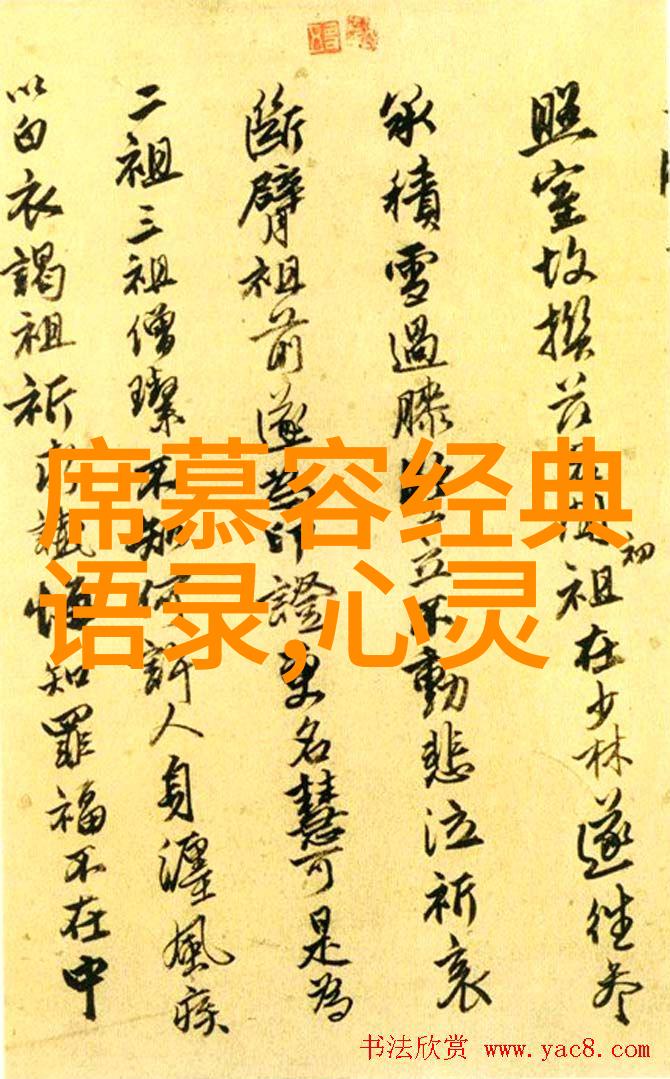 照室故撰祖初在少林遂往參
承積雪過膝立不動悲泣祈哀
斷臂祖前遂為印證更名慧可是為
二祖三祖僧璨不知何許人身纏風疾
以白衣謁祖祈求懺悔知罪福不在中
席慕容经典
语录,心灵
书法欣赏 www.yac8.com